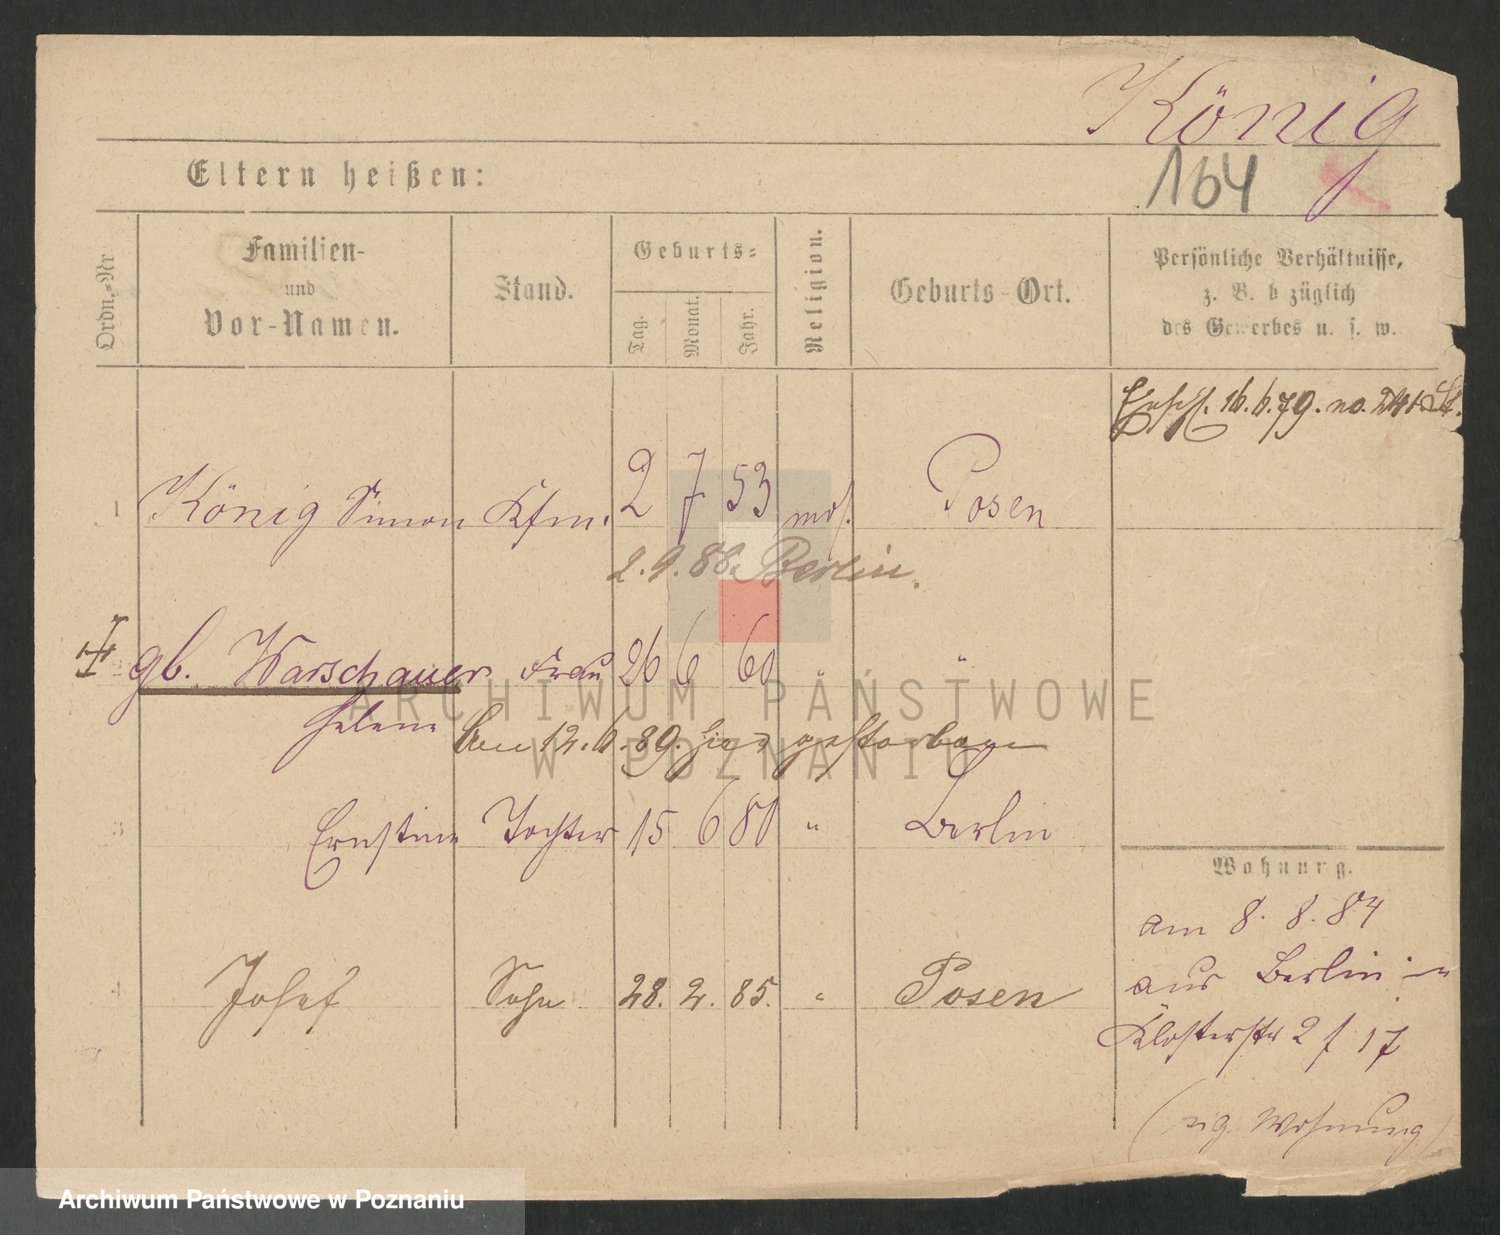 König
164
Eltern heißen:
Ordn.-Nr
Familien-
und
Vor-Namen.
Stand.
Geburts-
Tag.
Monat.
Jahr.
Religion.
Geburts-Ort.
Persönliche Verhältnisse,
z. B. b züglich
des Gewerbes u. s. w.
16.6.79. no. 241
1 König Simon Kfm. 2 7 53 mos. Posen
2.9.86. Berlin.
2 gb. Warschauer Frau 26 6 60 " "
Helene
den 12.6.89. hier gestorben
3 Ernstine Tochter 15 6 80 " Berlin
Wohnung.
am 8. 8. 84
aus Berlin in
Klosterstr 2 f 17
(eig. Wohnung)
4 Josef Sohn 28. 2. 85. " Posen
ARCHIWUM PAŃSTWOWE
W POZNANIU
Archiwum Państwowe w Poznaniu